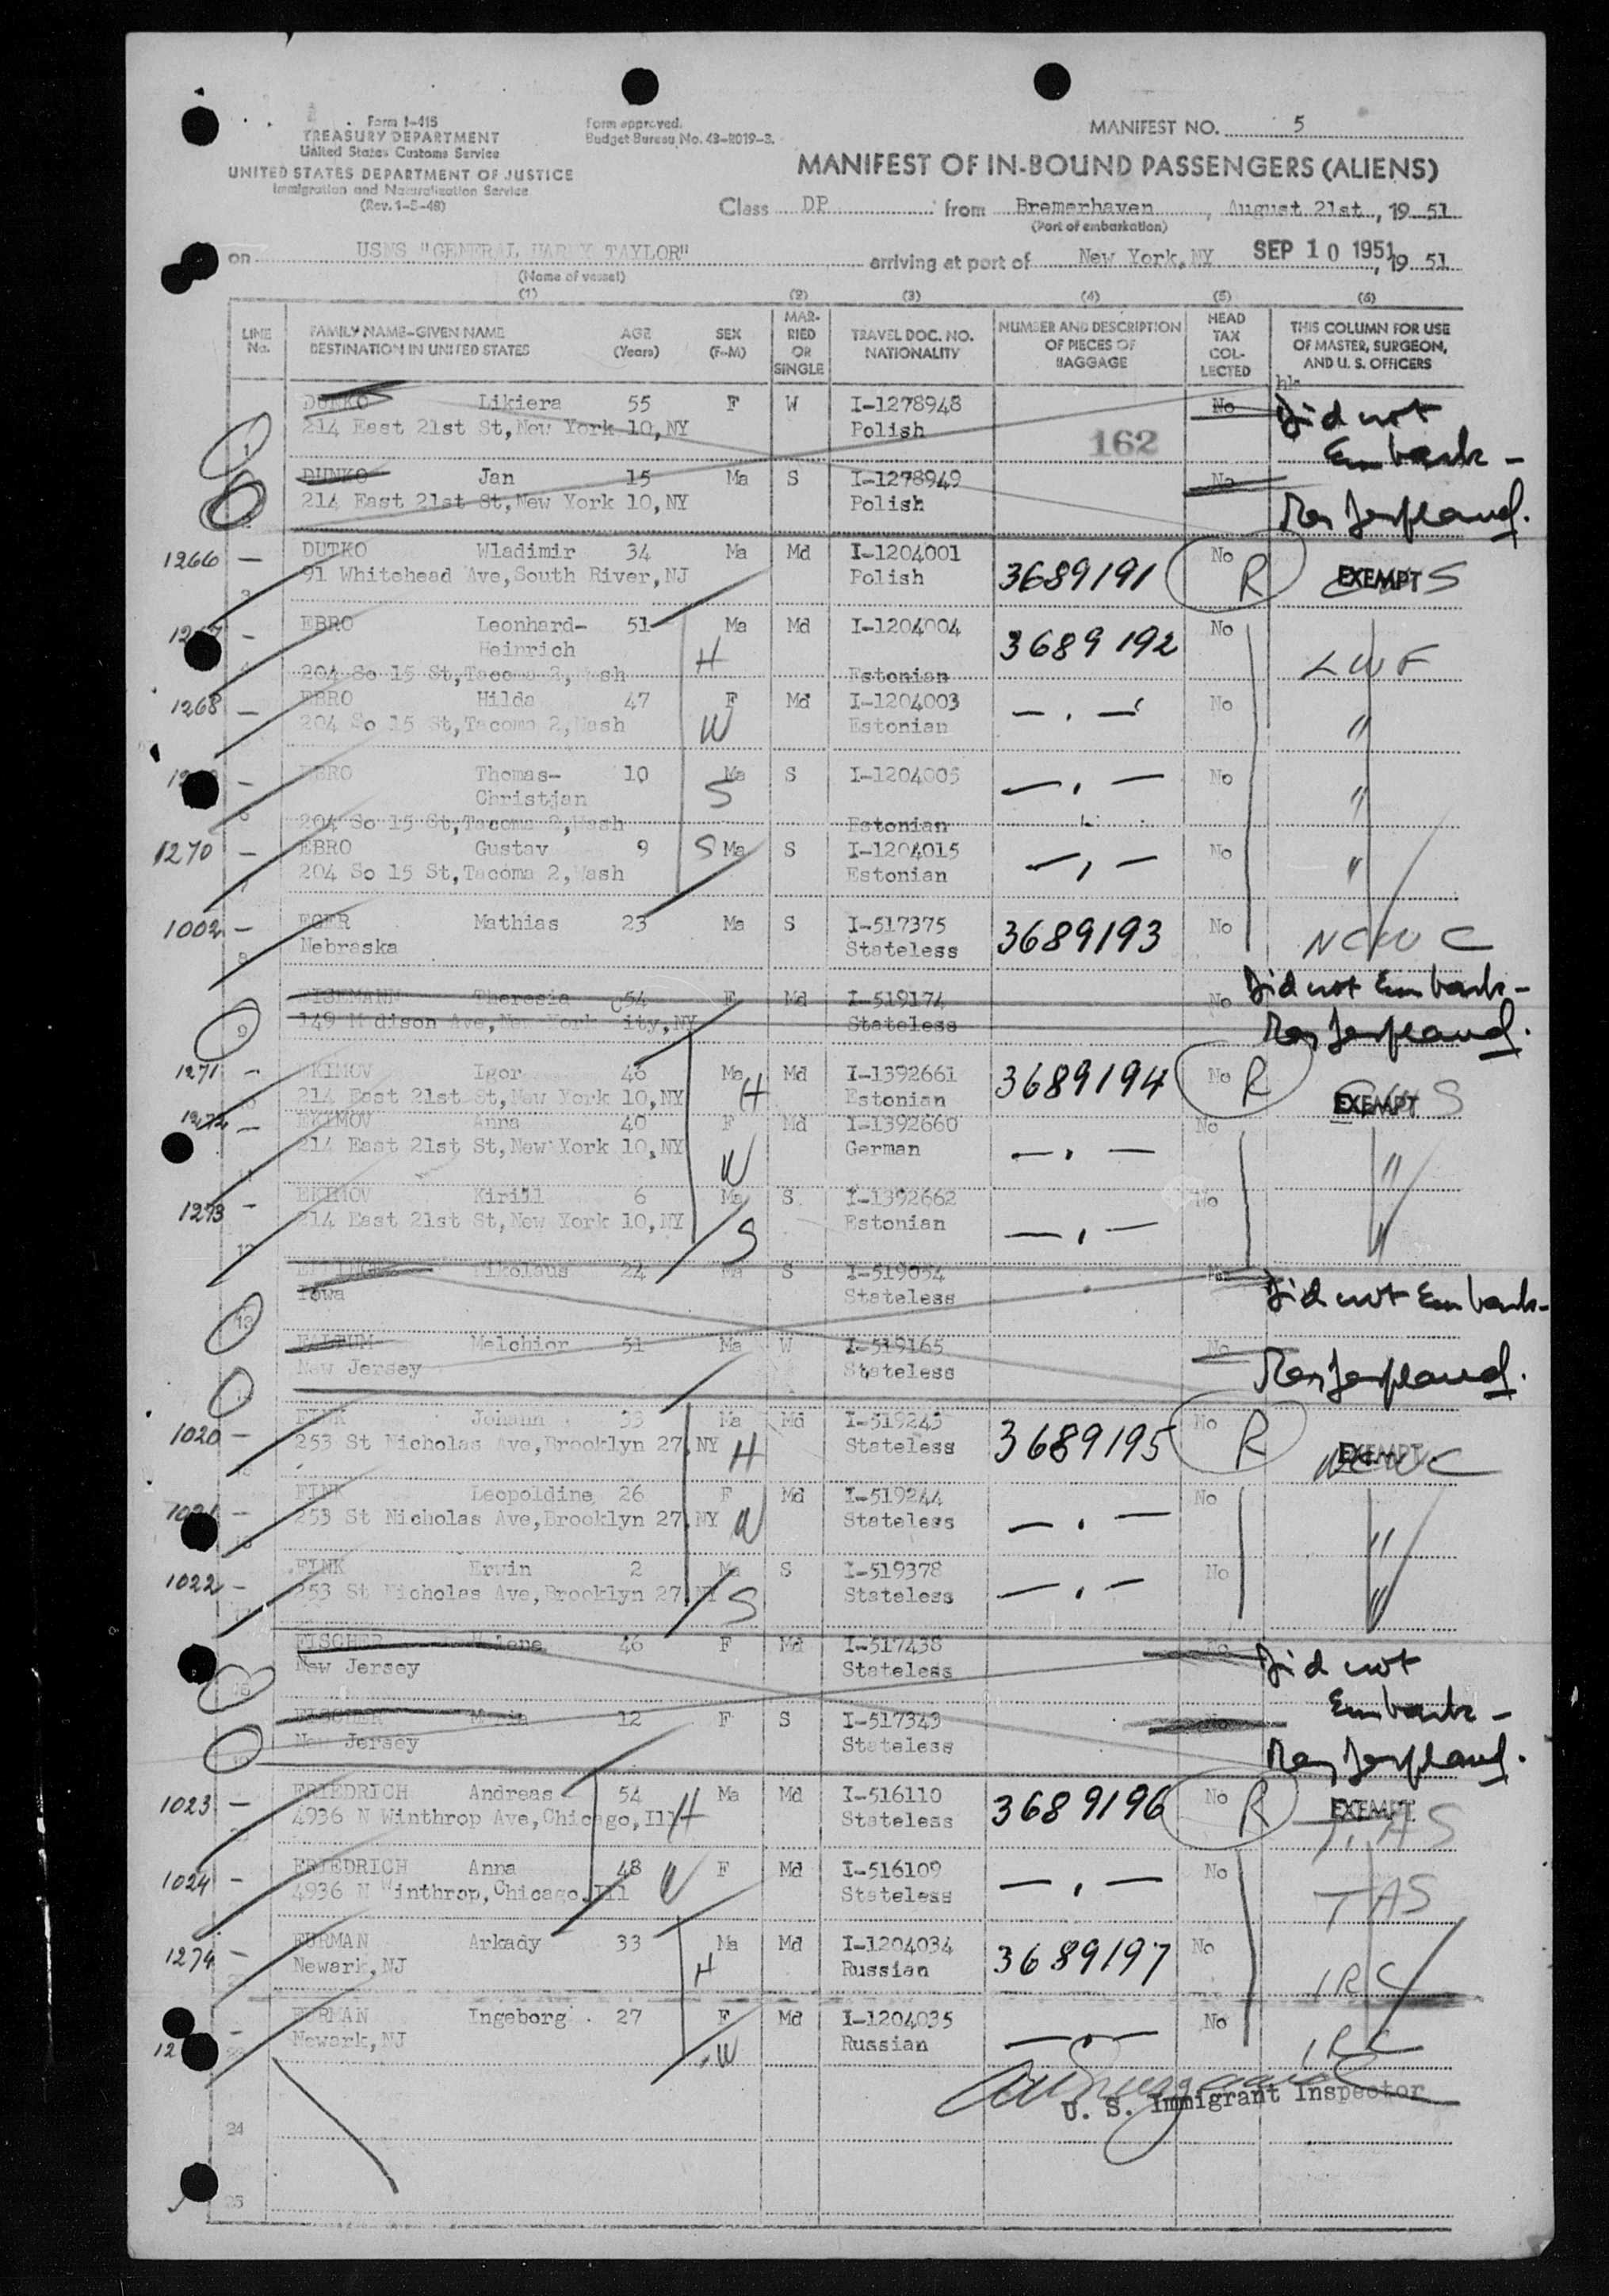 Form I-415
TREASURY DEPARTMENT
United States Customs Service
UNITED STATES DEPARTMENT OF JUSTICE
Immigration and Naturalization Service
(Rev. 1-5-48)
Form approved.
Budget Bureau No. 43-R019-3.
MANIFEST NO. 5
MANIFEST OF IN-BOUND PASSENGERS (ALIENS)
Class DP from Bremerhaven, August 21st, 19 51
(Port of embarkation)
on USNS "GENERAL HARRY TAYLOR" arriving at port of New York, NY SEP 10 1951, 19 51
(Name of vessel)
(1) (2) (3) (4) (5) (6)
LINE No. FAMILY NAME—GIVEN NAME DESTINATION IN UNITED STATES AGE (Years) SEX (F-M) MARRIED OR SINGLE TRAVEL DOC. NO. NATIONALITY NUMBER AND DESCRIPTION OF PIECES OF BAGGAGE HEAD TAX COLLECTED THIS COLUMN FOR USE OF MASTER, SURGEON, AND U. S. OFFICERS
Likiera 55 F W I-1278948 No Did not
214 East 21st St, New York 10, NY Polish 162 Embark -
1
DUNKO Jan 15 Ma S I-1278949 No
214 East 21st St, New York 10, NY Polish
1266 — DUTKO Wladimir 34 Ma Md I-1204001 3689191 No R EXEMPT S
91 Whitehead Ave, South River, NJ Polish
3
EBRO Leonhard- 51 Ma Md I-1204004 3689192 No
Heinrich H LWF
4 204 So 15 St, Tacoma 2, Wash Estonian
1268 — EBRO Hilda 47 F Md I-1204003 — . — No
204 So 15 St, Tacoma 2, Wash W Estonian "
— EBRO Thomas- 10 Ma S I-1204005 — . — No
Christjan S "
6 204 So 15 St, Tacoma 2, Wash Estonian
1270 — EBRO Gustav 9 S Ma S I-1204015 — . — No
7 204 So 15 St, Tacoma 2, Wash Estonian "
1002 — EGER Mathias 23 Ma S I-517375 3689193 No NCWC
8 Nebraska Stateless
EISEMANN Theresia 54 F Md I-519174 No Did not Embark -
9 149 Madison Ave, New York City, NY Stateless
1271 — EKIMOV Igor 46 Ma Md I-1392661 3689194 No R
10 214 East 21st St, New York 10, NY H Estonian EXEMPT S
1272 — EKIMOV Anna 40 F Md I-1392660 No
11 214 East 21st St, New York 10, NY W German — . — "
1273 — EKIMOV Kirill 6 Ma S I-1392662 No
12 214 East 21st St, New York 10, NY S Estonian — . — "
Nikolaus 24 Ma S I-519054 No Did not Embark -
13 Iowa Stateless
Melchior 51 Ma W I-519165 No
14 New Jersey Stateless
1020 — FINK Johann 33 Ma Md I-519243 3689195 No R EXEMPT
15 253 St Nicholas Ave, Brooklyn 27, NY H Stateless NCWC
1021 — FINK Leopoldine 26 F Md I-519244 No
16 253 St Nicholas Ave, Brooklyn 27, NY W Stateless — . — "
1022 — FINK Erwin 2 Ma S I-519378 No
17 253 St Nicholas Ave, Brooklyn 27, NY S Stateless — . — "
FISCHER 46 F Md I-517438 No Did not
18 New Jersey Stateless Embark -
FISCHER Maria 12 F S I-517343 No
19 New Jersey Stateless
1023 — FRIEDRICH Andreas 54 Ma Md I-516110 3689196 No R EXEMPT
20 4936 N Winthrop Ave, Chicago, Ill H Stateless
1024 — FRIEDRICH Anna 48 F Md I-516109 No
4936 N Winthrop, Chicago, Ill W Stateless — . — TAS
1274 — FURMAN Arkady 33 Ma Md I-1204034 3689197 No
22 Newark, NJ H Russian IRC
— FURMAN Ingeborg 27 F Md I-1204035 No
23 Newark, NJ W Russian — . — IRC
U. S. Immigrant Inspector
24
25